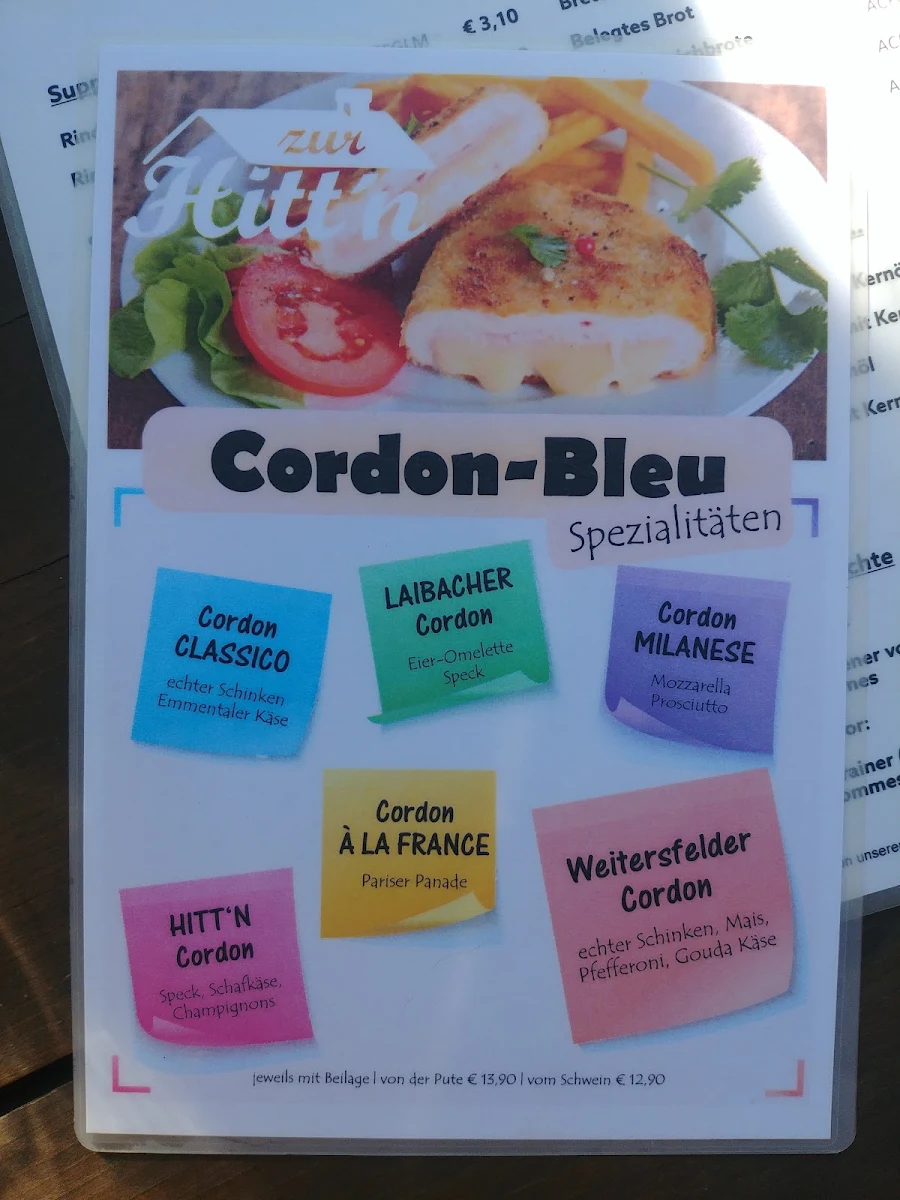 € 3,10
Belegtes Brot
zur
Hitt'n
Cordon-Bleu
Spezialitäten
Cordon
CLASSICO
echter Schinken
Emmentaler Käse
LAIBACHER
Cordon
Eier-Omelette
Speck
Cordon
MILANESE
Mozzarella
Prosciutto
Cordon
À LA FRANCE
Pariser Panade
HITT'N
Cordon
Speck, Schafkäse,
Champignons
Weitersfelder
Cordon
echter Schinken, Mais,
Pfefferoni, Gouda Käse
jeweils mit Beilage | von der Pute € 13,90 | vom Schwein € 12,90